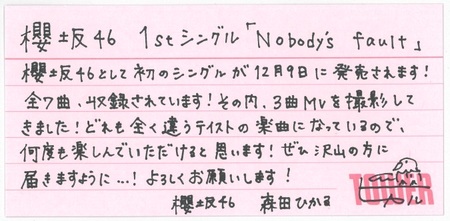 櫻坂46 1stシングル「Nobody's fault」
櫻坂46として初のシングルが12月9日に発売されます!
全7曲、収録されています!その内、3曲MVを撮影して
きました!どれも全く違うテイストの楽曲になっているので、
何度も楽しんでいただけると思います!ぜひ沢山の方に
届きますように…!よろしくお願いします!
櫻坂46 森田ひかる
TOWER